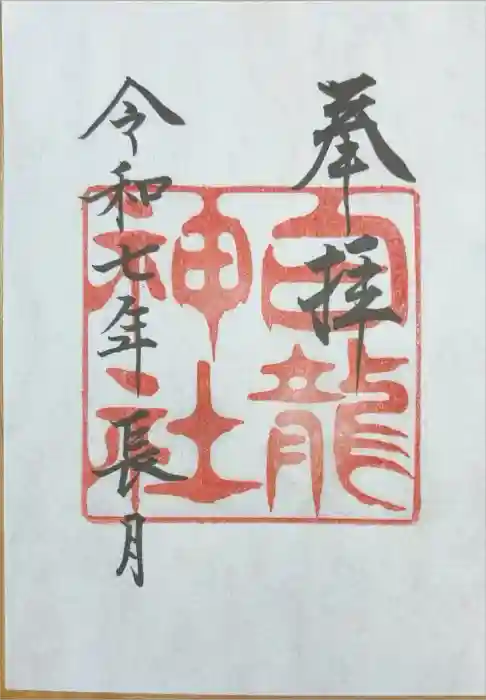 奉拝
白龍
神社
令和七年長月